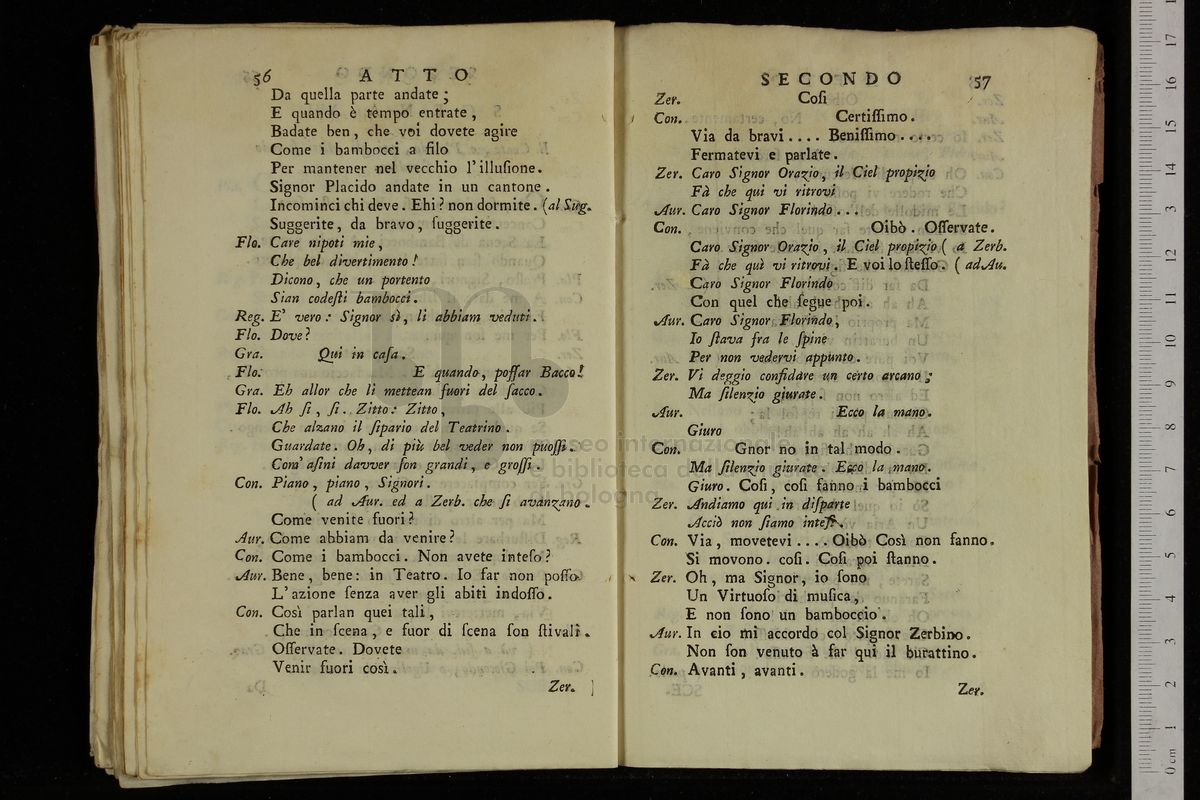 56 ATTO
Da quella parte andate;
E quando è tempo entrate,
Badate ben, che voi dovete agire
Come i bambocci a filo
Per mantener nel vecchio l'illuſione.
Signor Placido andate in un cantone.
Incominci chi deve. Ehi? non dormite. (al Sug.
Suggerite, da bravo, ſuggerite.
Flo. Care nipoti mie,
Che bel divertimento!
Dicono, che un portento
Sian codeſti bambocci.
Reg. E' vero: Signor sì, li abbiam veduti.
Flo. Dove?
Gra. Qui in caſa.
Flo. E quando, poſſar Bacco!
Gra. Eh allor che li mettean fuori del ſacco.
Flo. Ah ſi, ſi. Zitto: Zitto,
Che alzano il ſipario del Teatrino.
Guardate. Oh, di più bel veder non puoſſi.
Com' aſini davver ſon grandi, e groſſi.
Con. Piano, piano, Signori.
( ad Aur. ed a Zerb. che ſi avanzano.
Come venite fuori?
Aur. Come abbiam da venire?
Con. Come i bambocci. Non avete inteſo?
Aur. Bene, bene: in Teatro. Io far non poſſo
L'azione ſenza aver gli abiti indoſſo.
Con. Così parlan quei tali,
Che in ſcena, e fuor di ſcena ſon ſtivali.
Oſſervate. Dovete
Venir fuori così.
Zer.
SECONDO 57
Zer. Coſi
Con. Certiſſimo.
Via da bravi.... Beniſſimo....
Fermatevi e parlate.
Zer. Caro Signor Orazio, il Ciel propizio
Fà che qui vi ritrovi
Aur. Caro Signor Florindo...
Con. Oibò. Oſſervate.
Caro Signor Orazio, il Ciel propizio ( a Zerb.
Fà che quì vi ritrovi. E voi lo ſteſſo. ( ad Au.
Caro Signor Florindo
Con quel che ſegue poi.
Aur. Caro Signor Florindo,
Io ſtava fra le ſpine
Per non vedervi appunto.
Zer. Vi deggio confidare un certo arcano;
Ma ſilenzio giurate.
Aur. Ecco la mano.
Giuro
Con. Gnor no in tal modo.
Ma ſilenzio giurate. Ecco la mano.
Giuro. Coſi, coſi fanno i bambocci
Zer. Andiamo qui in diſparte
Acciò non ſiamo inteſi.
Con. Via, movetevi.... Oibò Così non fanno.
Si movono. coſi. Coſi poi ſtanno.
Zer. Oh, ma Signor, io ſono
Un Virtuoſo di muſica,
E non ſono un bamboccio.
Aur. In cio mi accordo col Signor Zerbino.
Non ſon venuto à far qui il burattino.
Con. Avanti, avanti.
Zer.